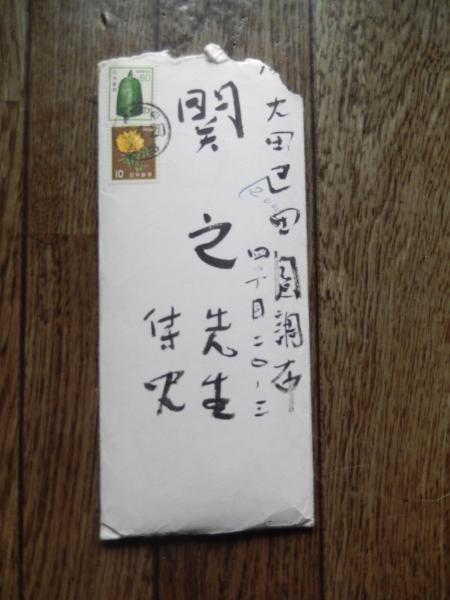 大田区田園調布
四丁目二〇ー三
関
之
先生
侍史
60
日本郵便
10
日本郵便